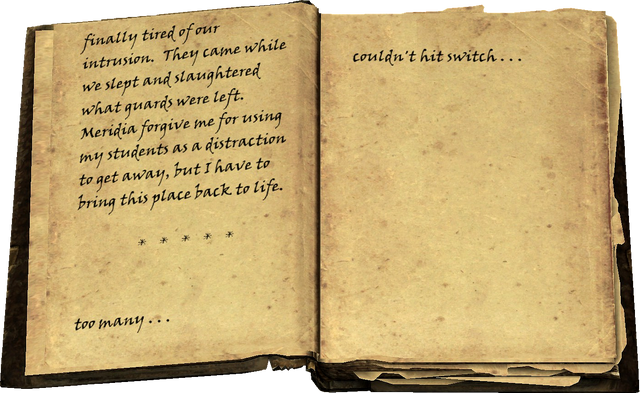 finally tired of our
intrusion. They came while
we slept and slaughtered
what guards were left.
Meridia forgive me for using
my students as a distraction
to get away, but I have to
bring this place back to life.
* * * * *
too many . . .
couldn't hit switch . . .